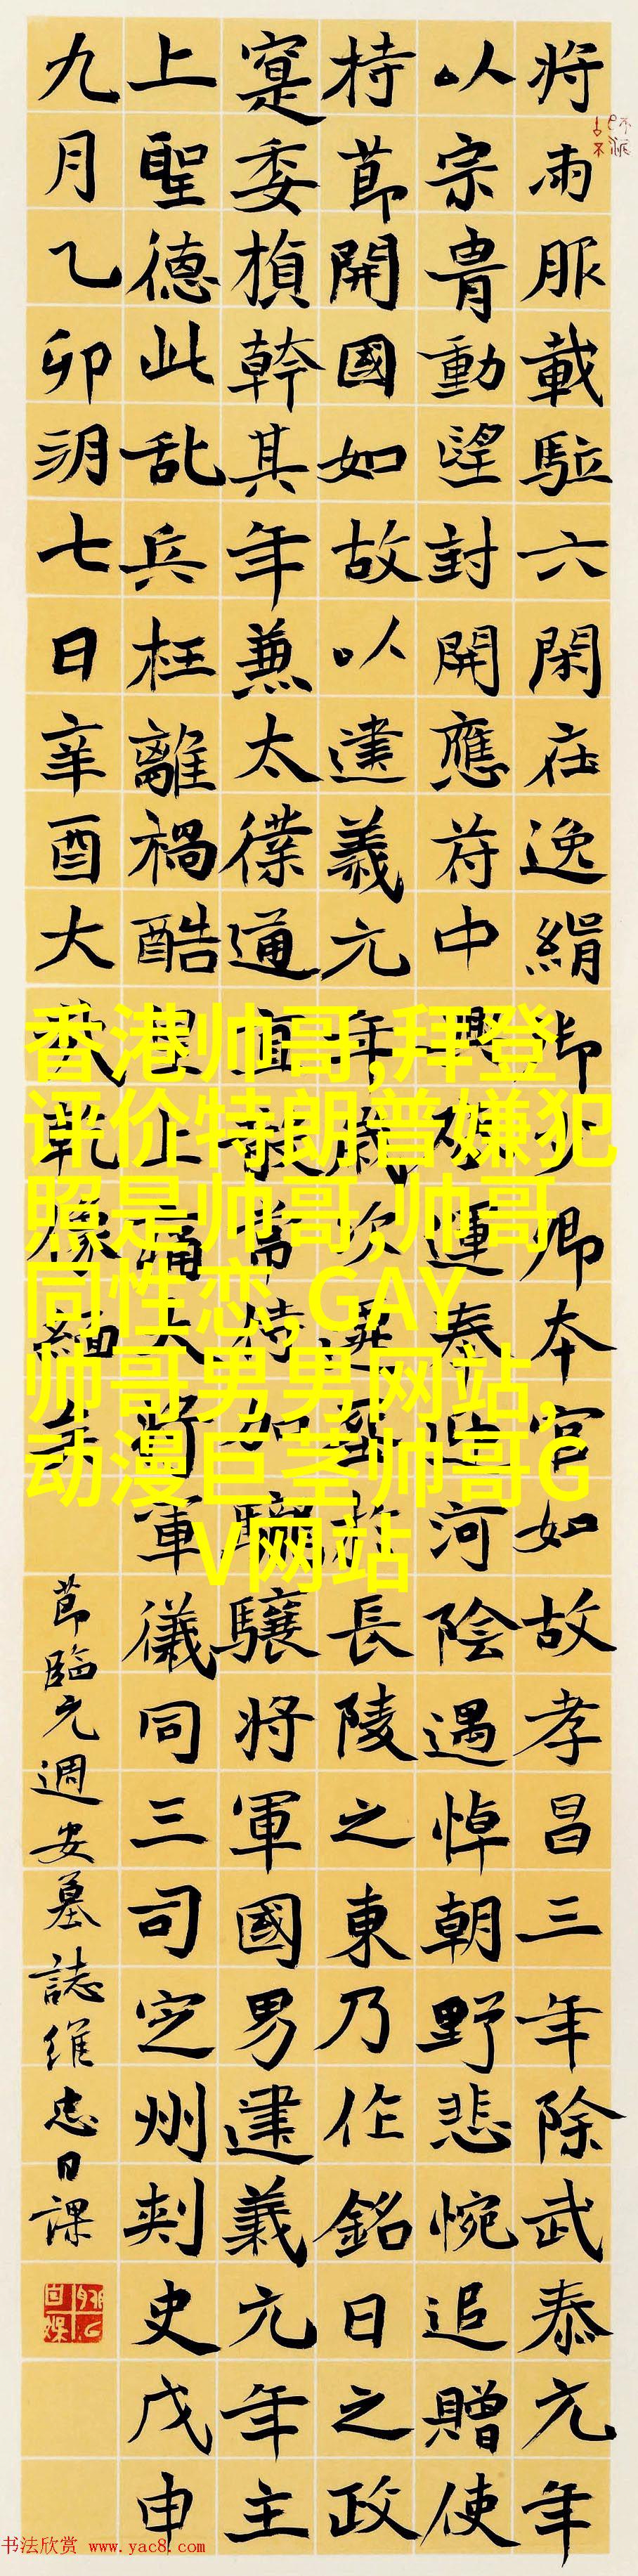 将雨服載駈六閑在逸絹御少卿本官如故孝昌三年除武泰元年
以宗胄動望封開應苻中興嫄運奉迎河陰遇悼朝野悲惋追贈使
持節開國如故以建義元年歲次長陵之東乃作銘曰之政
寔委楨幹其年兼太僕道宣散常侍驤將軍國男建義元年主
上聖德此乱兵枉離禍酷聖上痛大將軍儀同三司定州刾史戊申
九月乙卯朔七日辛酉大
節臨元週安墓誌維忠日課
香港帅哥,拜登
评价特朗普嫌犯
照是帅哥,帅哥
同性恋,GAY
帅哥男男网站,
动漫巨茎帅哥G
V网站
书法欣赏 www.yac8.com